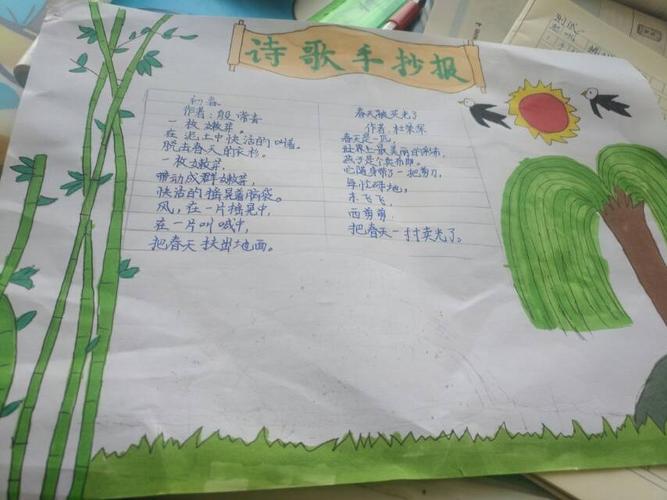 诗歌手抄报
初春
作者:殷常青
一枚嫩芽,
在泥土中快活的叫嚷。
脱去春天的衣衫。
一枚嫩芽,
带动成群嫩芽,
快活的摇晃着脑袋。
风,在一片摇晃中,
在一片叫喊中,
把春天扶出地面。
春天被卖光了
作者:杜荣琛
春天是一匹,
世界上最美丽的彩布,
燕子是个卖布郎。
它随身带了一把剪刀,
每忙碌地,
东飞飞,
西剪剪,
把春天一寸寸卖光了。